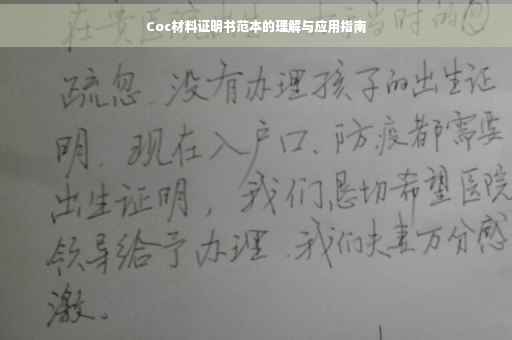 Coc材料证明书范本的理解与应用指南
在贵医院 当时的
疏忽、没有办理孩子的出生证
明、现在入户口、防疫都需要
出生证明，我们恳切希望医院
领导给予办理、我们夫妻万分感
激。